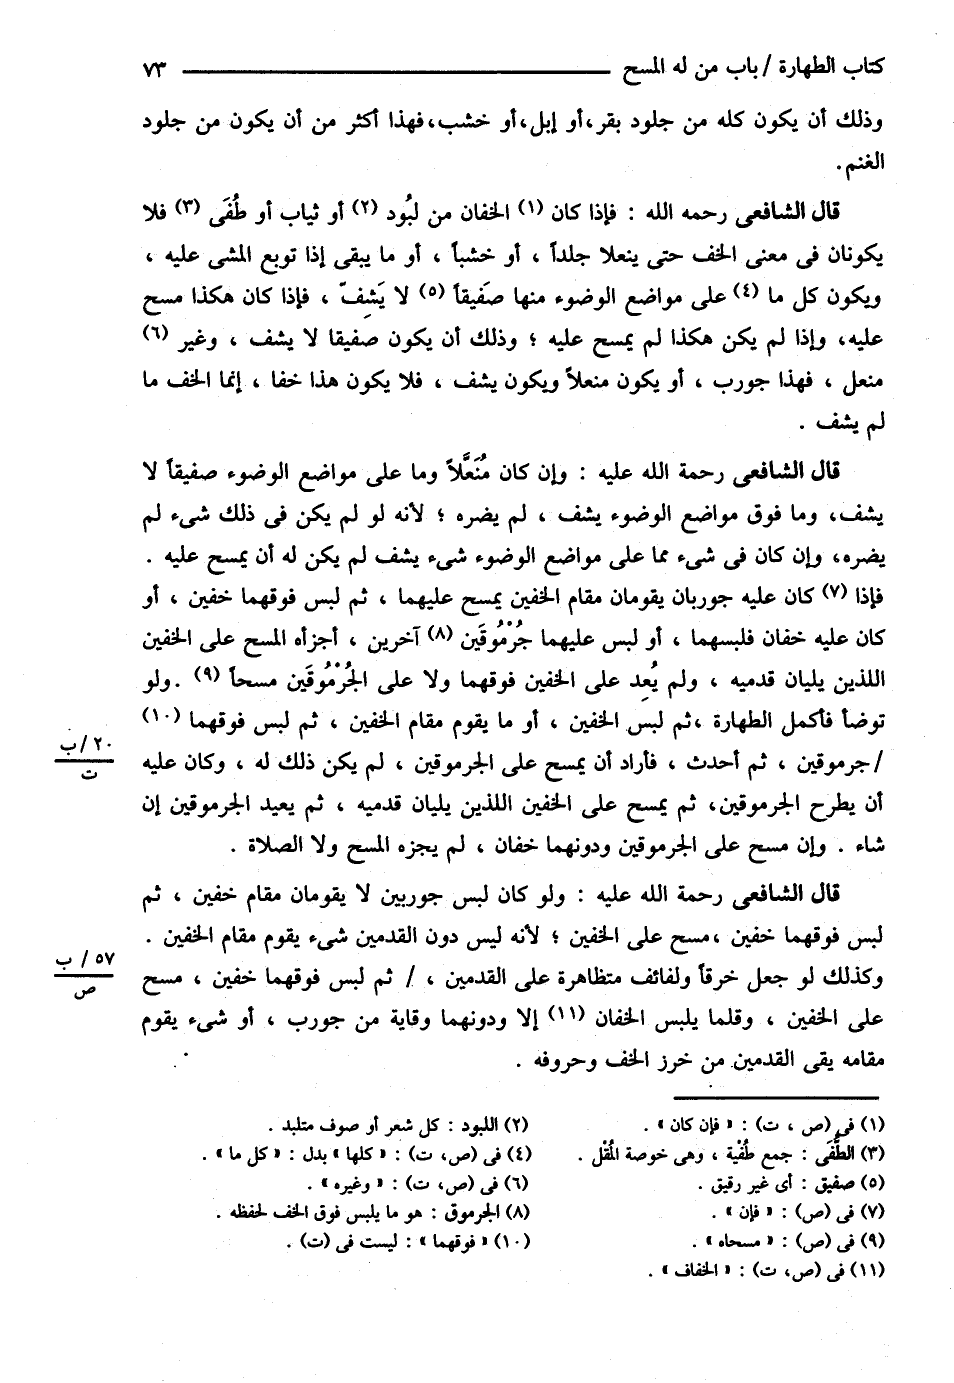 كتاب الطهارة / باب من له المسح ـــــــــــ ٧٣
وذلك أن يكون كله من جلود بقر، أو إبل، أو خشب، فهذا أكثر من أن يكون من جلود
الغنم.
قال الشافعى رحمه الله : فإذا كان (١) الخفان من لبُود (٢) أو ثياب أو طُفَى (٣) فلا
يكونان فى معنى الخف حتى ينعلا جلداً ، أو خشباً ، أو ما يبقى إذا توبع المشى عليه ،
ويكون كل ما (٤) على مواضع الوضوء منها صَفيقاً (٥) لا يَشِفّ ، فإذا كان هكذا مسح
عليه، وإذا لم يكن هكذا لم يمسح عليه ؛ وذلك أن يكون صفيقا لا يشف ، وغير (٦)
منعل ، فهذا جورب ، أو يكون منعلاً ويكون يشف ، فلا يكون هذا خفا ، إنما الخف ما
لم يشف .
قال الشافعى رحمة الله عليه : وإن كان مُنَعَّلاً وما على مواضع الوضوء صفيقاً لا
يشف، وما فوق مواضع الوضوء يشف ، لم يضره ؛ لأنه لو لم يكن فى ذلك شىء لم
يضره، وإن كان فى شىء مما على مواضع الوضوء شىء يشف لم يكن له أن يمسح عليه .
فإذا (٧) كان عليه جوربان يقومان مقام الخفين يمسح عليهما ، ثم لبس فوقهما خفين ، أو
كان عليه خفان فلبسهما ، أو لبس عليهما جُرْمُوقَين (٨) آخرين ، أجزأه المسح على الخفين
اللذين يليان قدميه ، ولم يُعِد على الخفين فوقهما ولا على الجُرْمُوقَين مسحاً (٩) .ولو
توضأ فأكمل الطهارة ،ثم لبس الخفين ، أو ما يقوم مقام الخفين ، ثم لبس فوقهما (١٠)
/ جرموقين ، ثم أحدث ، فأراد أن يمسح على الجرموقين ، لم يكن ذلك له ، وكان عليه
٢٠ /ب
ت
أن يطرح الجرموقين، ثم يمسح على الخفين اللذين يليان قدميه ، ثم يعيد الجرموقين إن
شاء . وإن مسح على الجرموقين ودونهما خفان ، لم يجزه المسح ولا الصلاة .
قال الشافعى رحمة الله عليه : ولو كان لبس جوربين لا يقومان مقام خفين ، ثم
لبس فوقهما خفين ،مسح على الخفين ؛ لأنه ليس دون القدمين شىء يقوم مقام الخفين .
وكذلك لو جعل خرقاً ولفائف متظاهرة على القدمين ، / ثم لبس فوقهما خفين ، مسح
٥٧ / ب
ص
على الخفين ، وقلما يلبس الخفان (١١) إلا ودونهما وقاية من جورب ، أو شىء يقوم
مقامه يقى القدمين من خرز الخف وحروفه .
(١) فى (ص ، ت) : « فإن كان » .
(٢) اللبود : كل شعر أو صوف متلبد .
(٣) الطُّفَى : جمع طُفْية ، وهى خوصة المُقْل .
(٤) فى (ص، ت) : « كلها » بدل : « كل ما » .
(٥) صفيق : أى غير رقيق .
(٦) فى (ص، ت) : « وغيره » .
(٧) فى (ص) : « فإن » .
(٨) الجرموق : هو ما يلبس فوق الخف لحفظه .
(٩) فى (ص) : « مسحاه » .
(١٠) « فوقهما » : ليست فى (ت) .
(١١) فى (ص، ت) : « الخفاف » .